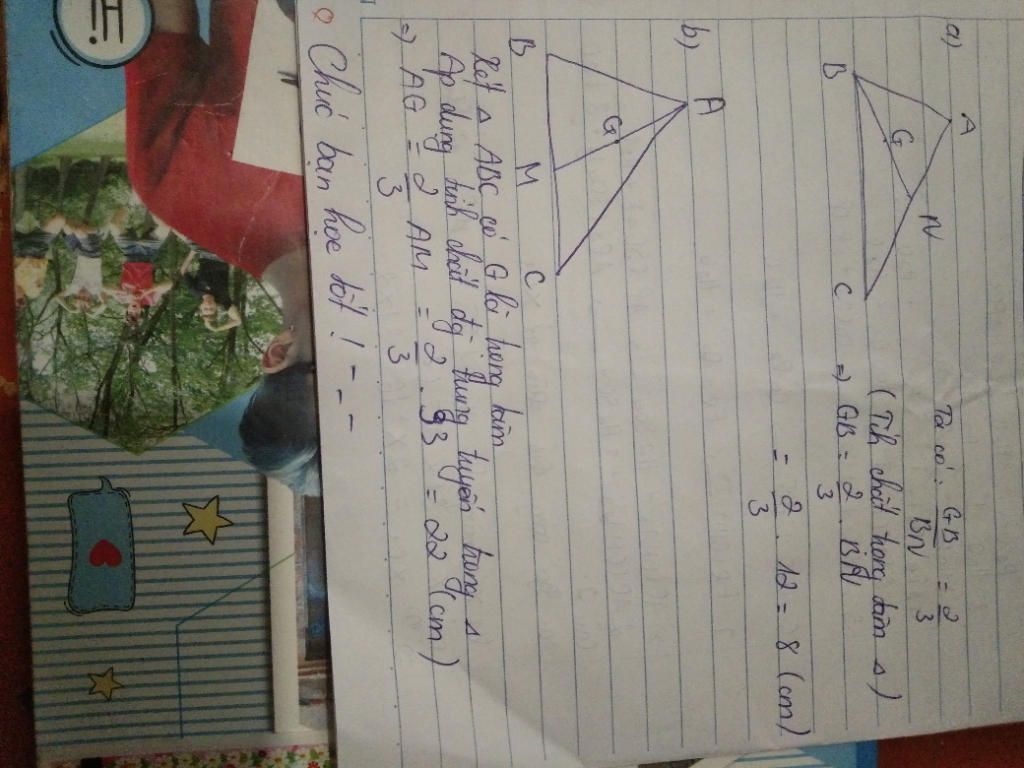 a)
A
G
N
B
C
Ta có: GB/BN = 2/3
(Tính chất trọng tâm Δ)
=> GB = 2/3 . BN
= 2/3 . 12 = 8 (cm)
b)
A
G
B
M
C
Xét Δ ABC có G là trọng tâm
Áp dụng tính chất đg trung tuyến trong Δ
=> AG = 2/3 AM = 2/3 . 33 = 22 (cm)
Chúc bạn học tốt! - - -
Hi!